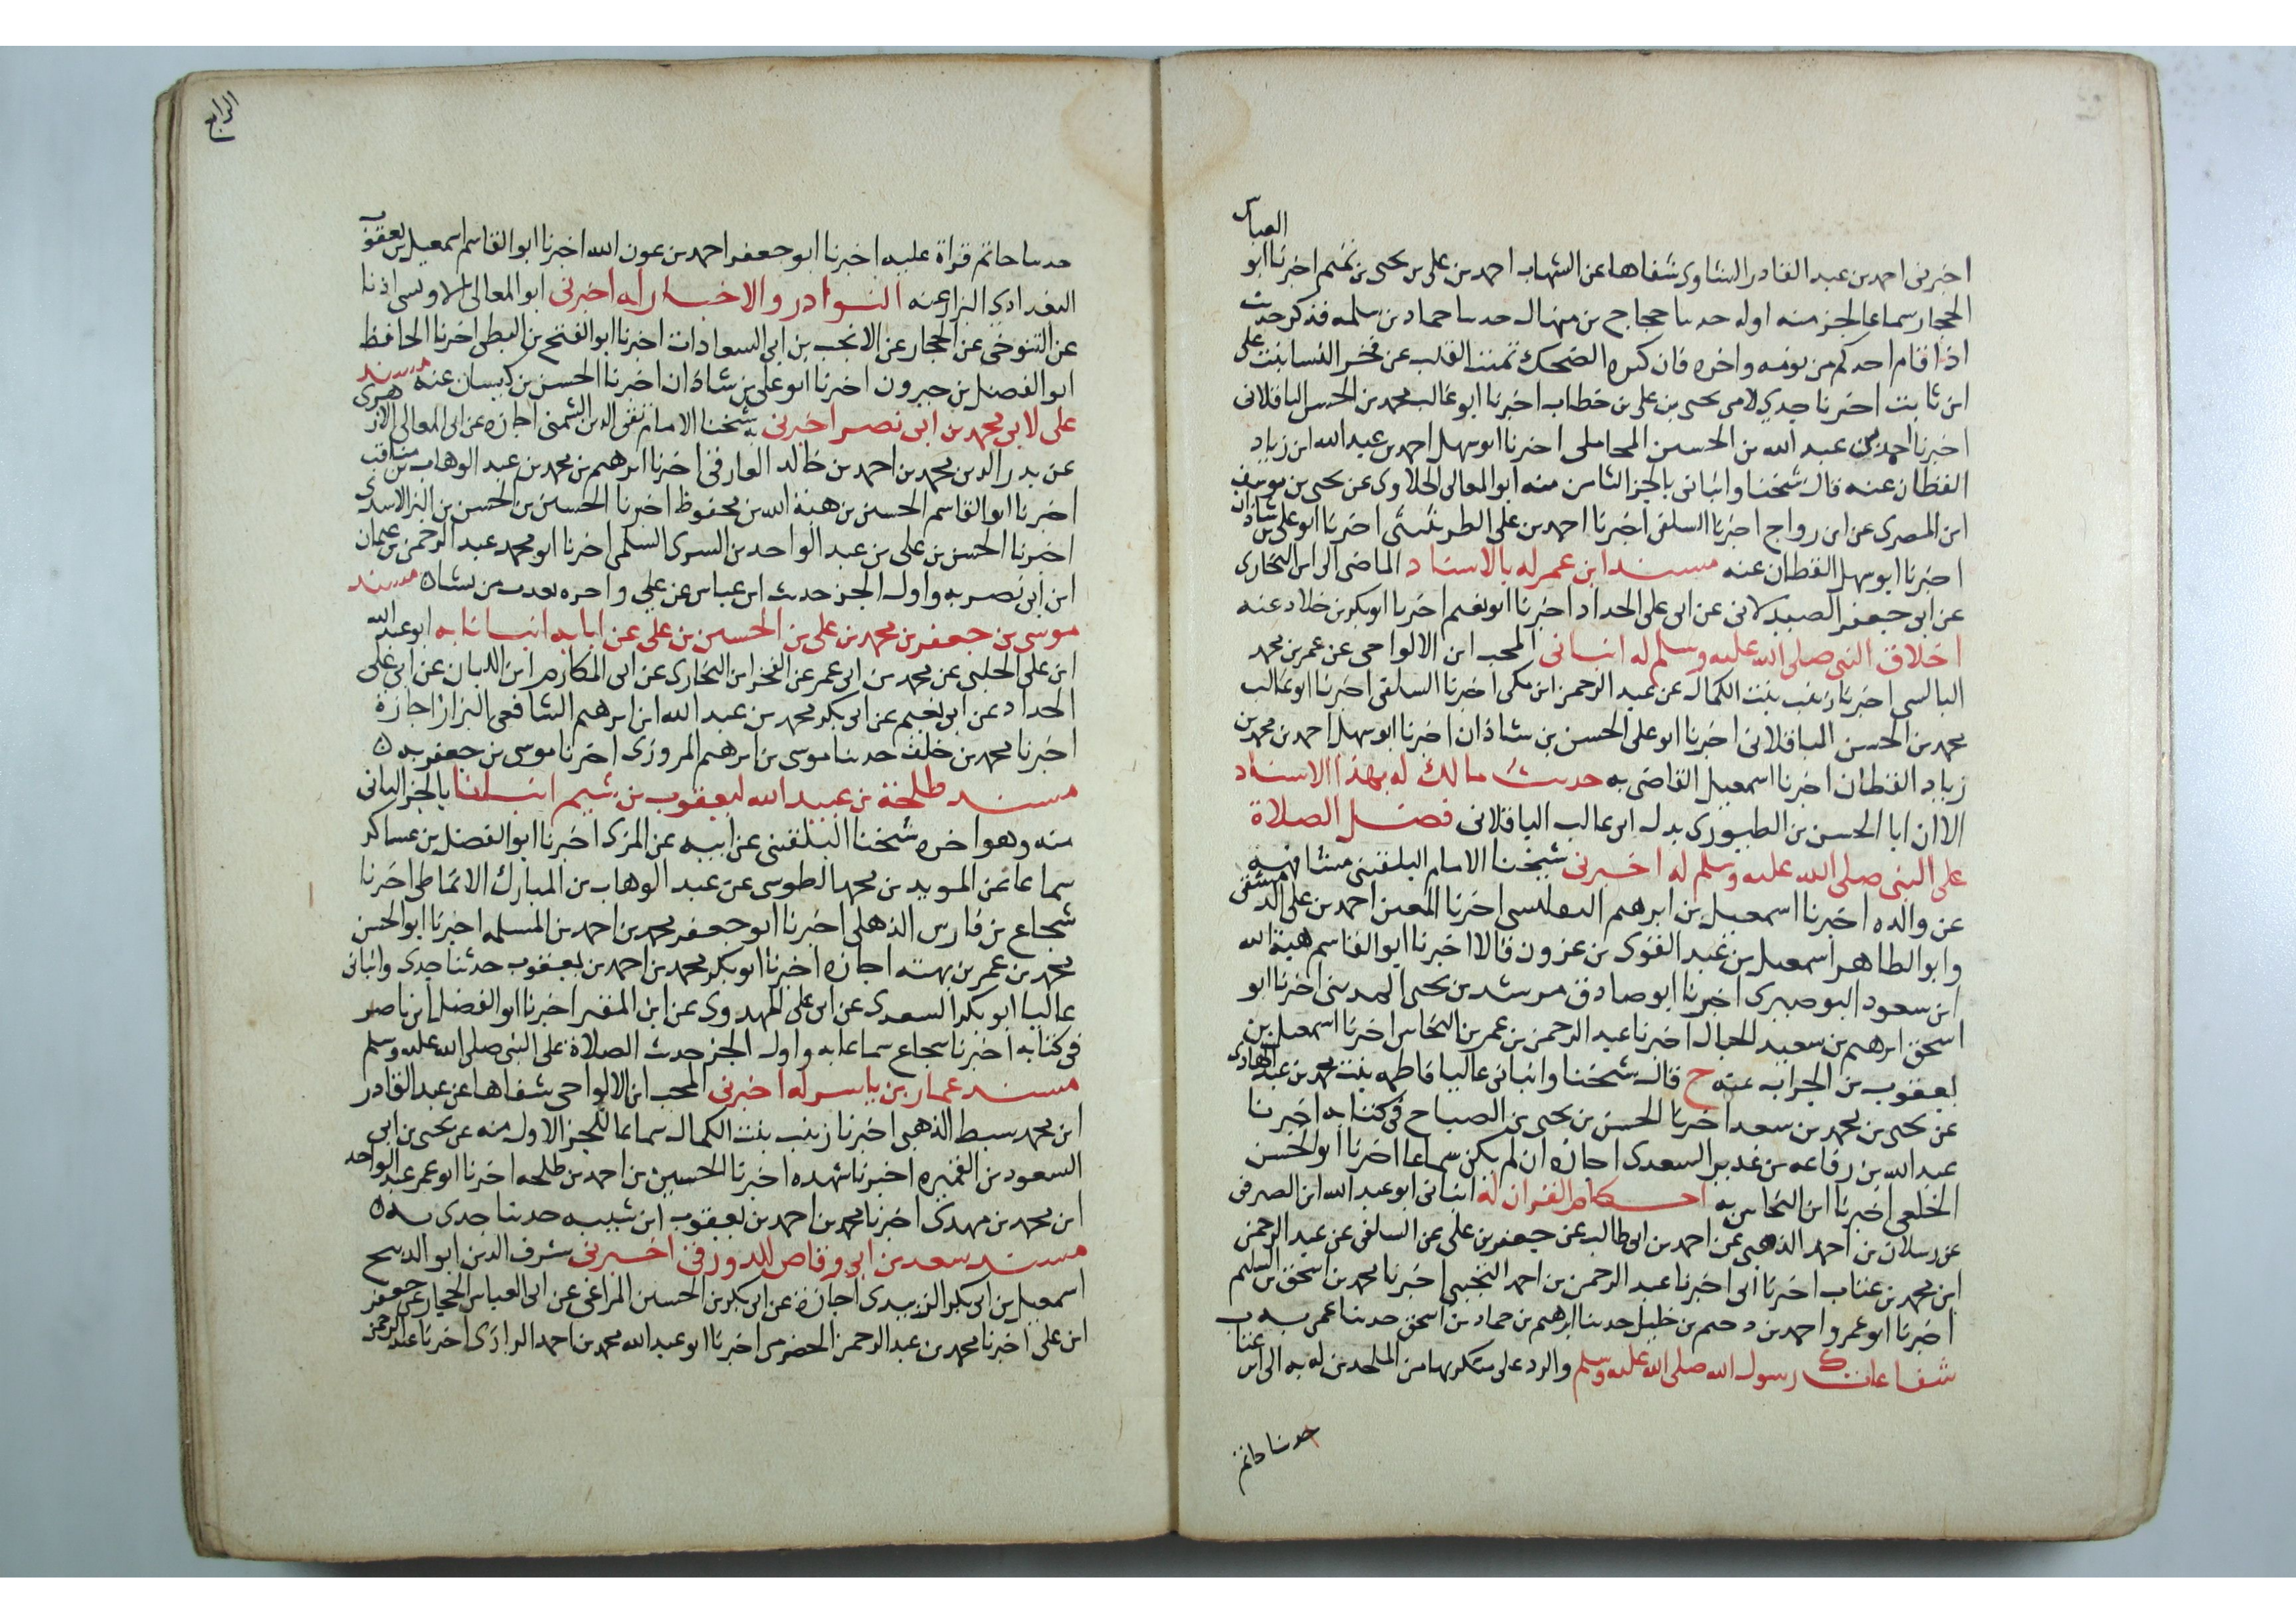 العباس
اخبرنى احمد بن عبد القادر الشاوى شفاها عن الشهاب احمد بن على بن يحيى بن تميم اخبرنا ابو
الحجار سماعا لجز منه اوله حدثنا حجاج بن منهال حدثنا حماد بن سلمه فذكر حديث
اذا قام احدكم من نومه واخره فان كثره الضحك تميت القلب عن فخر النسا بنت على
ابن ثابت اخبرنا جدي لامى يحيى بن على بن خطاب اخبرنا ابو غالب محمد بن الحسن الباقلانى
اخبرنا احمد بن عبد الله بن الحسين المحاملى اخبرنا ابو سهل احمد بن عبد الله ابن زياد
القطان عنه قال شخنا وانبانى بالجز الثامن منه ابو المعالى الحلاوى عن يحيى بن يوسف
ابن المصرى عن ابن رواج اخبرنا السلفى اخبرنا احمد بن على الطريثيثى اخبرنا ابو على بن شاذان
اخبرنا ابو سهل القطان عنه مسند ابن عمر له بالاسناد الماضى الى ابن البخارى
عن ابى جعفر الصيدلانى عن ابى على الحداد اخبرنا ابو نعيم اخبرنا ابو بكر بن خلاد عنه
اخلاق النبى صلى الله عليه وسلم له انبانى المحب ابن الالواحى عن عمر بن محمد
البالسى اخبرنا زينب بنت الكمال عن عبد الرحمن ابن مكى اخبرنا السلفى اخبرنا ابو غالب
محمد بن الحسن الباقلانى اخبرنا ابو على الحسن بن شاذان اخبرنا ابو سهل احمد بن محمد بن
زياد القطان اخبرنا اسمعيل القاضى به حديث مالك له بهذا الاسناد
الا ان ابا الحسن بن الطيورى بدل ابى غالب الباقلانى فضل الصلاة
على النبى صلى الله عليه وسلم له اخبرنى شيخنا الامام البلقينى مشافهة
عن والده اخبرنا اسمعيل بن ابرهيم التفليسى اخرنا المعين احمد بن على الدمشقى
وابو الطاهر اسمعيل بن عبد القوى بن عزون قالا اخبرنا ابو القاسم هبة الله
ابن سعود البوصيرى اخبرنا ابو صادق مرشد بن يحيى المدينى اخرنا ابو
اسحق ابرهيم بن سعيد الحبال اخبرنا عبد الرحمن بن عمر بن النحاس اخبرنا اسمعيل بن
يعقوب بن الجراب عنه ح قال شخنا وانبانى عاليا فاطمه بنت محمد بن عبد الهادى
عن يحيى بن محمد بن سعد اخبرنا الحسن بن يحيى بن الصباح فى كتابه اخبرنا
عبد الله بن رفاعه بن غدير السعدى اجازه ان لم يكن سماعا اخرنا ابو الحسن
الخلعى اخبرنا ابن النحاس به احكام القران له انبانى ابو عبد الله ابن الصرفى
عن رسلان بن احمد الذهبى عن احمد بن ابى طالب عن جعفر بن على عن السلفى عن عبد الرحمن
ابن محمد بن عتاب اخبرنا ابى اخبرنا عبد الرحمن بن احمد التجيبى اخبرنا محمد بن اسحق ابن السليم
اخبرنا ابو عمرو احمد بن دحيم بن خليل حدثنا ابرهيم بن حماد بن اسحق حدثنا عمى به
شفاعات رسول الله صلى الله عليه وسلم والرد على منكريها من الملحدين له به الى ابن عتاب
حدثنا حاتم
الرابع
حدثنا حاتم قراة عليه اخبرنا ابو جعفر احمد بن عون الله اخبرنا ابو القاسم اسمعيل بن يعقوب
البغدادي البزار عنه النوادر والاخبار له اخبرنى ابو المعالى اذنا
عن التنوخى عن الحجار عن الانجب بن ابى السعادات اخبرنا ابو الفتح بن البطى اخبرنا الحافظ
ابو الفضل بن خيرون اخبرنا ابو على بن شاذان اخبرنا الحسن بن كيسان عنه مسند
على لابى محمد بن ابى نصر اخبرنى به شخنا الامام تقى الدين الشمنى اجازه عن ابى المعالى الازهرى
عن بدر الدين محمد بن احمد بن خالد الفارقى اخبرنا ابرهيم بن محمد بن عبد الوهاب بن مناقب
اخبرنا ابو القاسم الحسين بن هبة الله بن محفوظ اخبرنا الحسين بن الحسن بن البن الاسدى
اخبرنا الحسن بن على بن عبد الواحد بن السرى السلمى اخبرنا ابو محمد عبد الرحمن بن عثمان
ابن ابى نصر به واول الجز حديث ابن عباس عن علي واخره يعذب من يشاه مسند
موسى بن جعفر بن محمد بن على بن الحسين بن على عن ابايه انبانا به ابو عبد الله
ابن على الحلبى عن محمد بن ابى عمر عن الفخر ابن البخارى عن ابى المكارم ابن اللبان عن ابى على
الحداد عن ابى نعيم عن ابى بكر محمد بن عبد الله ابن ابرهيم الشافعى البزاز اجازة
اخبرنا محمد بن خلف حدثنا موسى بن ابرهيم المروزى اخبرنا موسى بن جعفر به ه
مسند طلحة بن عبيد الله ليعقوب بن شيبه انبانا بالجز الثانى
منه وهو اخره شخنا البلقينى عن ابيه عن المزى اخبرنا ابو الفضل بن عساكر
سماعا عن المويد بن محمد الطوسى عن عبد الوهاب بن المبارك الانماطى اخبرنا
شجاع بن فارس الذهلى اخبرنا ابو جعفر محمد بن احمد بن المسلمه اخبرنا ابو الحسن
محمد بن عمر بن بهته اجازه اخبرنا ابو بكر محمد بن احمد بن يعقوب حدثنا جدى وانبانى
عاليا ابو بكر السعدى عن ابى على المهدوى عن ابن المقير اخبرنا ابو الفضل ابن ناصر
فى كتابه اخبرنا شجاع سماعا به واول الجز حديث الصلاة على النبى صلى الله عليه وسلم
مسند عمار بن ياسر له اخبرنى المحب ابن الالواحى شفاها عن عبد القادر
ابن محمد سبط الذهبى اخبرنا زينب بنت الكمال سماعا للجز الاول منه عن يحيى بن ابى
السعود بن القميره اخبرنا شهده اخبرنا الحسين بن احمد بن طلحه اخبرنا ابو عمر عبد الواحد
ابن محمد بن مهدى اخبرنا محمد بن احمد بن يعقوب ابن شيبه حدثنا جدى به ه
مسند سعد بن ابى وقاص للدورقى اخبرنى شرف الدين ابو الفتح
اسمعيل بن ابى بكر الزبيدى اجازة عن ابى بكر بن الحسين المراغى عن ابى العباس الحجار عن جعفر
ابن على اخبرنا محمد بن عبد الرحمن الحضرمى اخبرنا ابو عبد الله محمد بن احمد الرازى اخبرنا عبد الرحمن